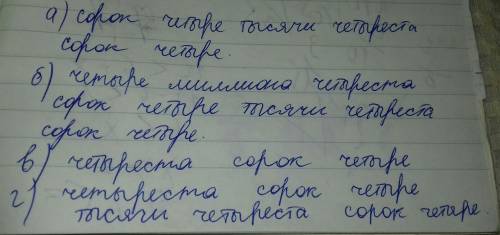 а) сорок четыре тысячи четыреста
сорок четыре.
б) четыре миллиона четыреста
сорок четыре тысячи четыреста
сорок четыре.
в) четыреста сорок четыре
г) четыреста сорок четыре
тысячи четыреста сорок четыре.